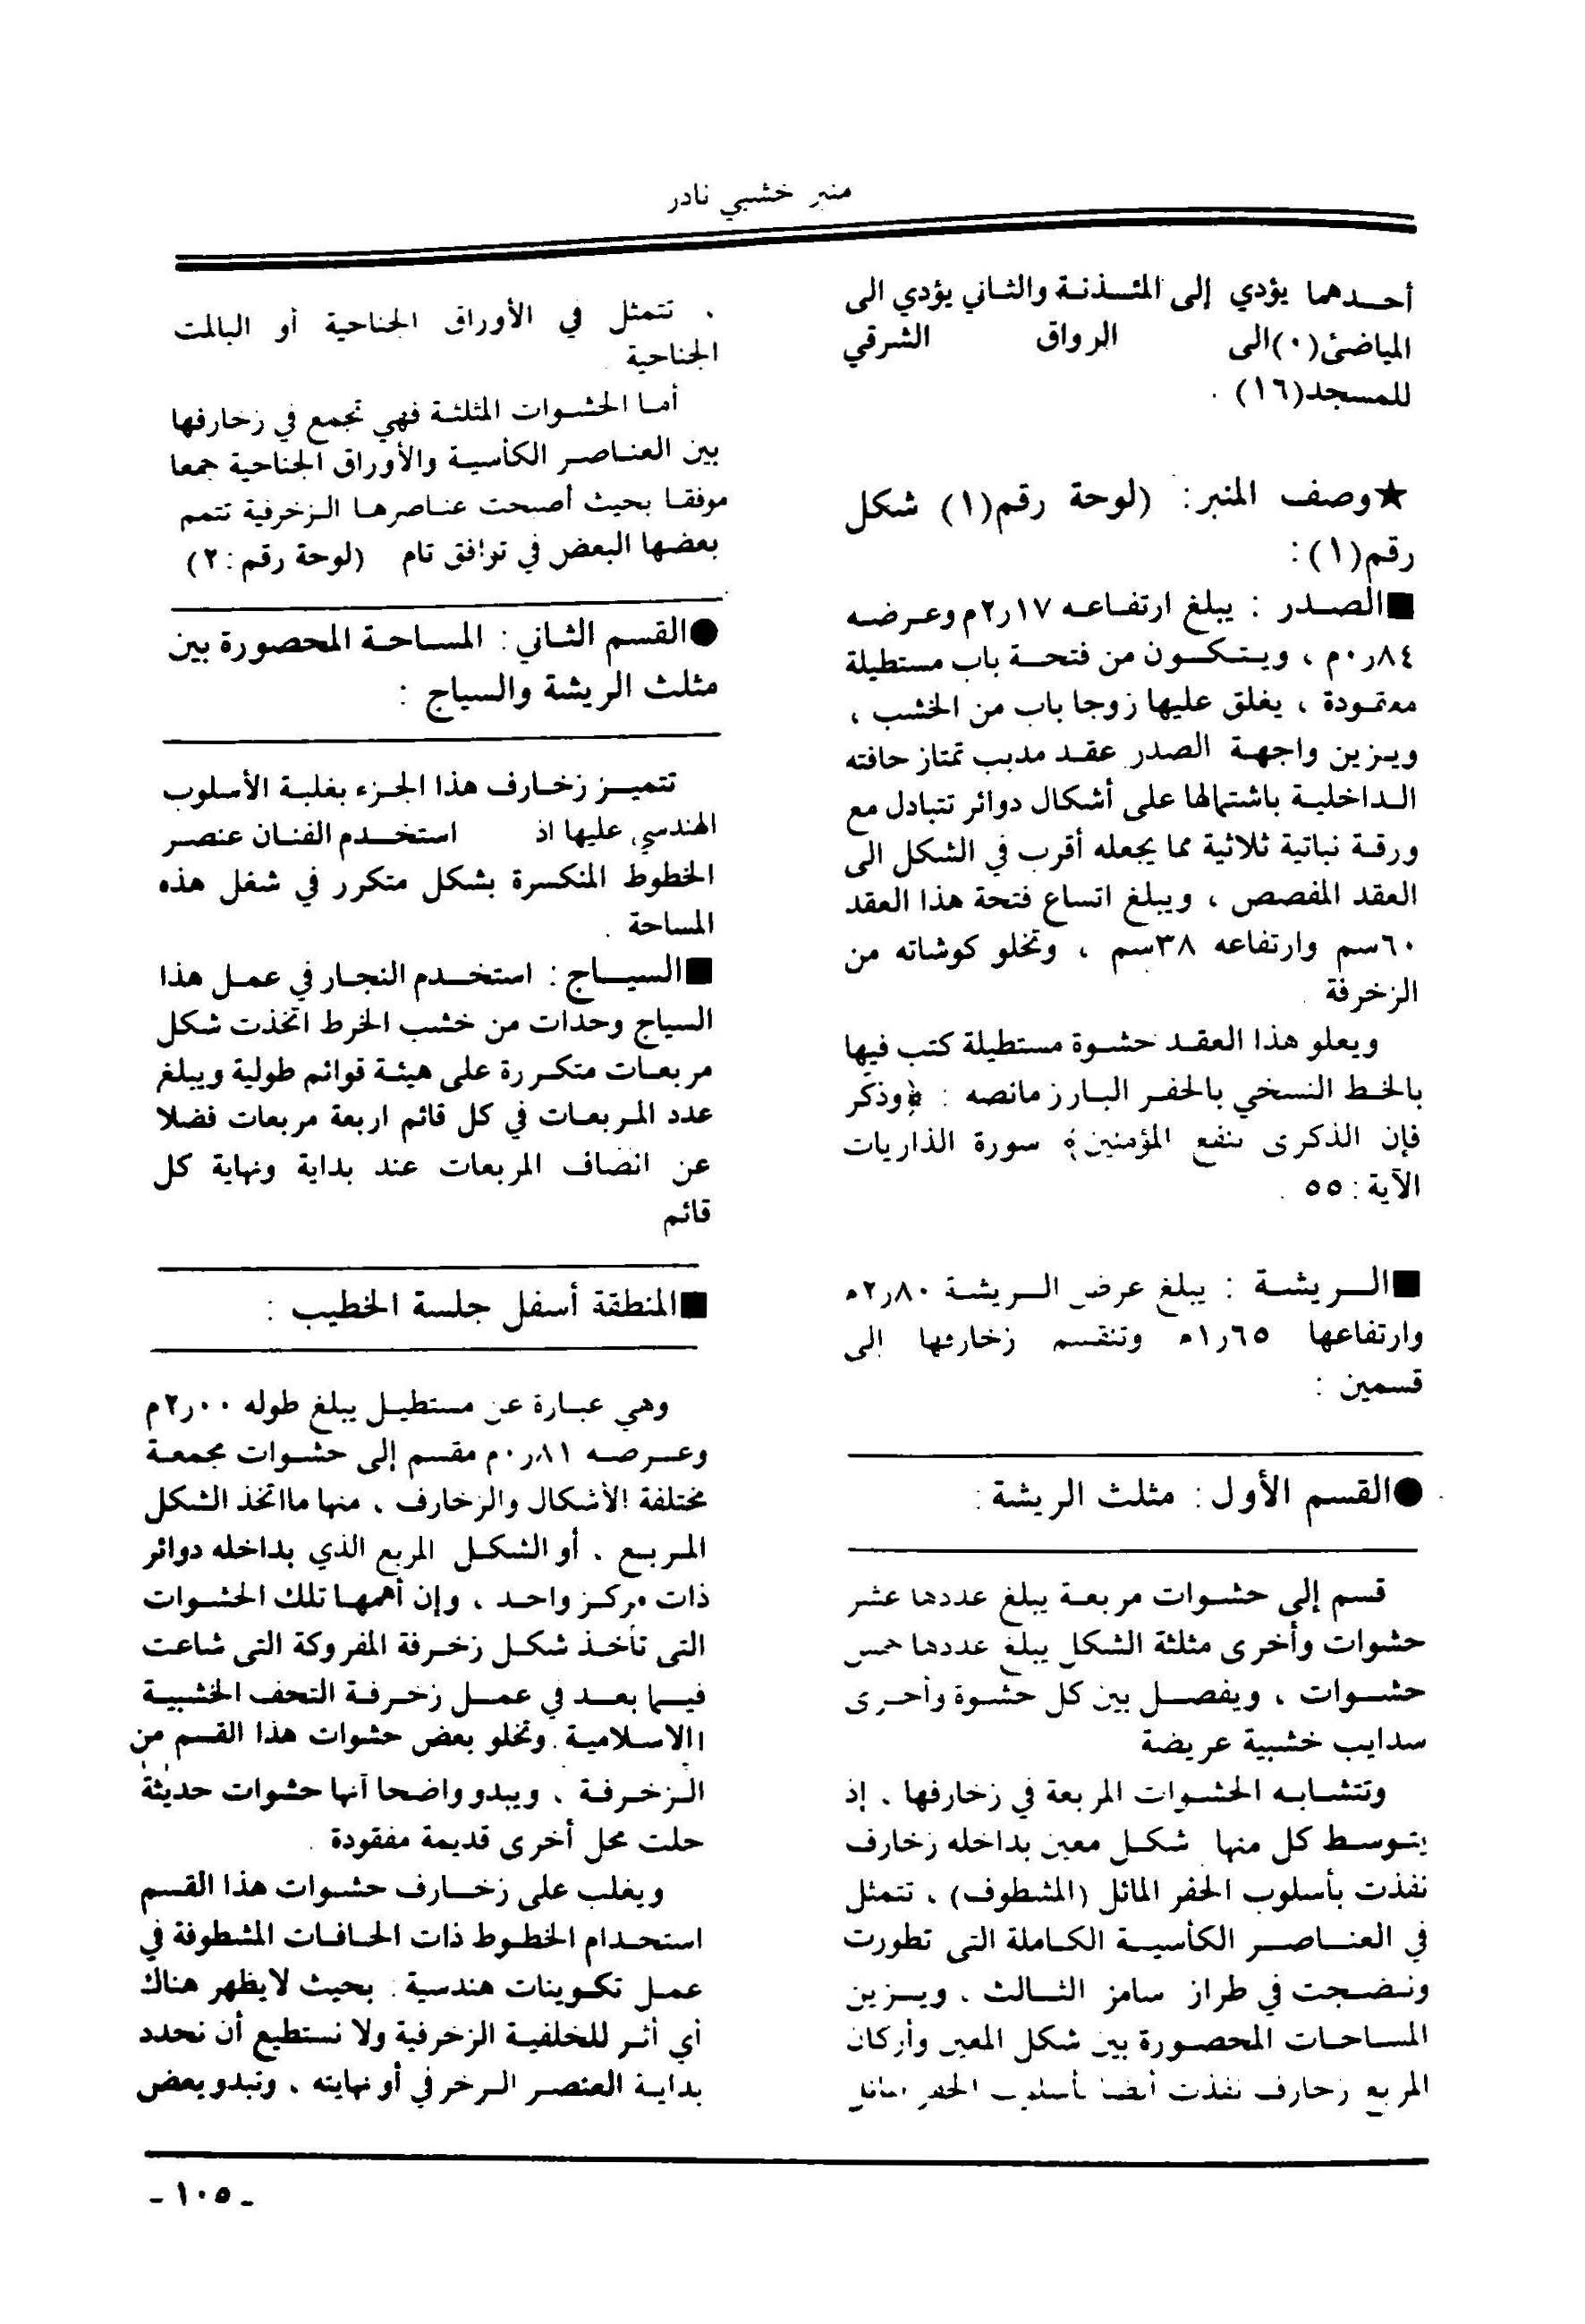 منبر خشبي نادر
أحدهما يؤدي إلى المئذنة والثاني يؤدي الى
المياضئ(٠)الى الرواق الشرقي
للمسجد(١٦) .
★وصف المنبر: (لوحة رقم(١) شكل
رقم(١):
■الصدر : يبلغ ارتفاعه ١٧ر٢م وعرضه
٨٤ر٠م ، ويتكون من فتحة باب مستطيلة
معتمودة ، يغلق عليها زوجا باب من الخشب ،
ويزين واجهة الصدر عقد مدبب تمتاز حافته
الداخلية باشتمالها على أشكال دوائر تتبادل مع
ورقة نباتية ثلاثية مما يجعله أقرب في الشكل الى
العقد المفصص ، ويبلغ اتساع فتحة هذا العقد
٦٠سم وارتفاعه ٣٨سم ، وتخلو كوشاته من
الزخرفة .
ويعلو هذا العقد حشوة مستطيلة كتب فيها
بالخط النسخي بالحفر البارز مانصه : ﴿وذكر
فإن الذكرى تنفع المؤمنين﴾ سورة الذاريات
الآية : ٥٥ .
■الريشة : يبلغ عرض الريشة ٨٠ر٢م
وارتفاعها ٦٥ر١م وتنقسم زخارفها إلى
قسمين :
●القسم الأول : مثلث الريشة :
قسم إلى حشوات مربعة يبلغ عددها عشر
حشوات وأخرى مثلثة الشكل يبلغ عددها خمس
حشوات ، ويفصل بين كل حشوة وأخرى
سدايب خشبية عريضة
وتتشابه الحشوات المربعة في زخارفها ، إذ
يتوسط كل منها شكل معين بداخله زخارف
نفذت بأسلوب الحفر المائل (المشطوف) ، تتمثل
في العناصر الكأسية الكاملة التى تطورت
ونضجت في طراز سامرا الثالث ، ويزين
المساحات المحصورة بين شكل المعين وأركان
المربع زخارف نفذت أيضا بأسلوب الحفر المائل
، تتمثل في الأوراق الجناحية أو البالمت
الجناحية .
أما الحشوات المثلثة فهي تجمع في زخارفها
بين العناصر الكأسية والأوراق الجناحية جمعا
موفقا بحيث أصبحت عناصرها الزخرفية تتمم
بعضها البعض في توافق تام (لوحة رقم : ٢)
●القسم الثاني : المساحة المحصورة بين
مثلث الريشة والسياج :
تتميز زخارف هذا الجزء بغلبة الأسلوب
الهندسي عليها اذ استخدم الفنان عنصر
الخطوط المنكسرة بشكل متكرر في شغل هذه
المساحة .
■السياج : استخدم النجار في عمل هذا
السياج وحدات من خشب الخرط اتخذت شكل
مربعات متكررة على هيئة قوائم طولية ويبلغ
عدد المربعات في كل قائم اربعة مربعات فضلا
عن انصاف المربعات عند بداية ونهاية كل
قائم
■المنطقة أسفل جلسة الخطيب :
وهي عبارة عن مستطيل يبلغ طوله ٠٠ر٢م
وعرضه ٨١ر٠م مقسم إلى حشوات مجمعة
مختلفة الأشكال والزخارف ، منها مااتخذ الشكل
المربع ، أو الشكل المربع الذي بداخله دوائر
ذات مركز واحد ، وإن أهمها تلك الحشوات
التى تأخذ شكل زخرفة المفروكة التى شاعت
فيما بعد في عمل زخرفة التحف الخشبية
الاسلامية . وتخلو بعض حشوات هذا القسم من
الزخرفة ، ويبدو واضحا أنها حشوات حديثة
حلت محل أخرى قديمة مفقودة .
ويغلب على زخارف حشوات هذا القسم
استخدام الخطوط ذات الحافات المشطوفة في
عمل تكوينات هندسية . بحيث لايظهر هناك
أي أثر للخلفية الزخرفية ولا نستطيع أن نحدد
بداية العنصر الزخرفي أو نهايته ، وتبدو بعض
- ١٠٥ -